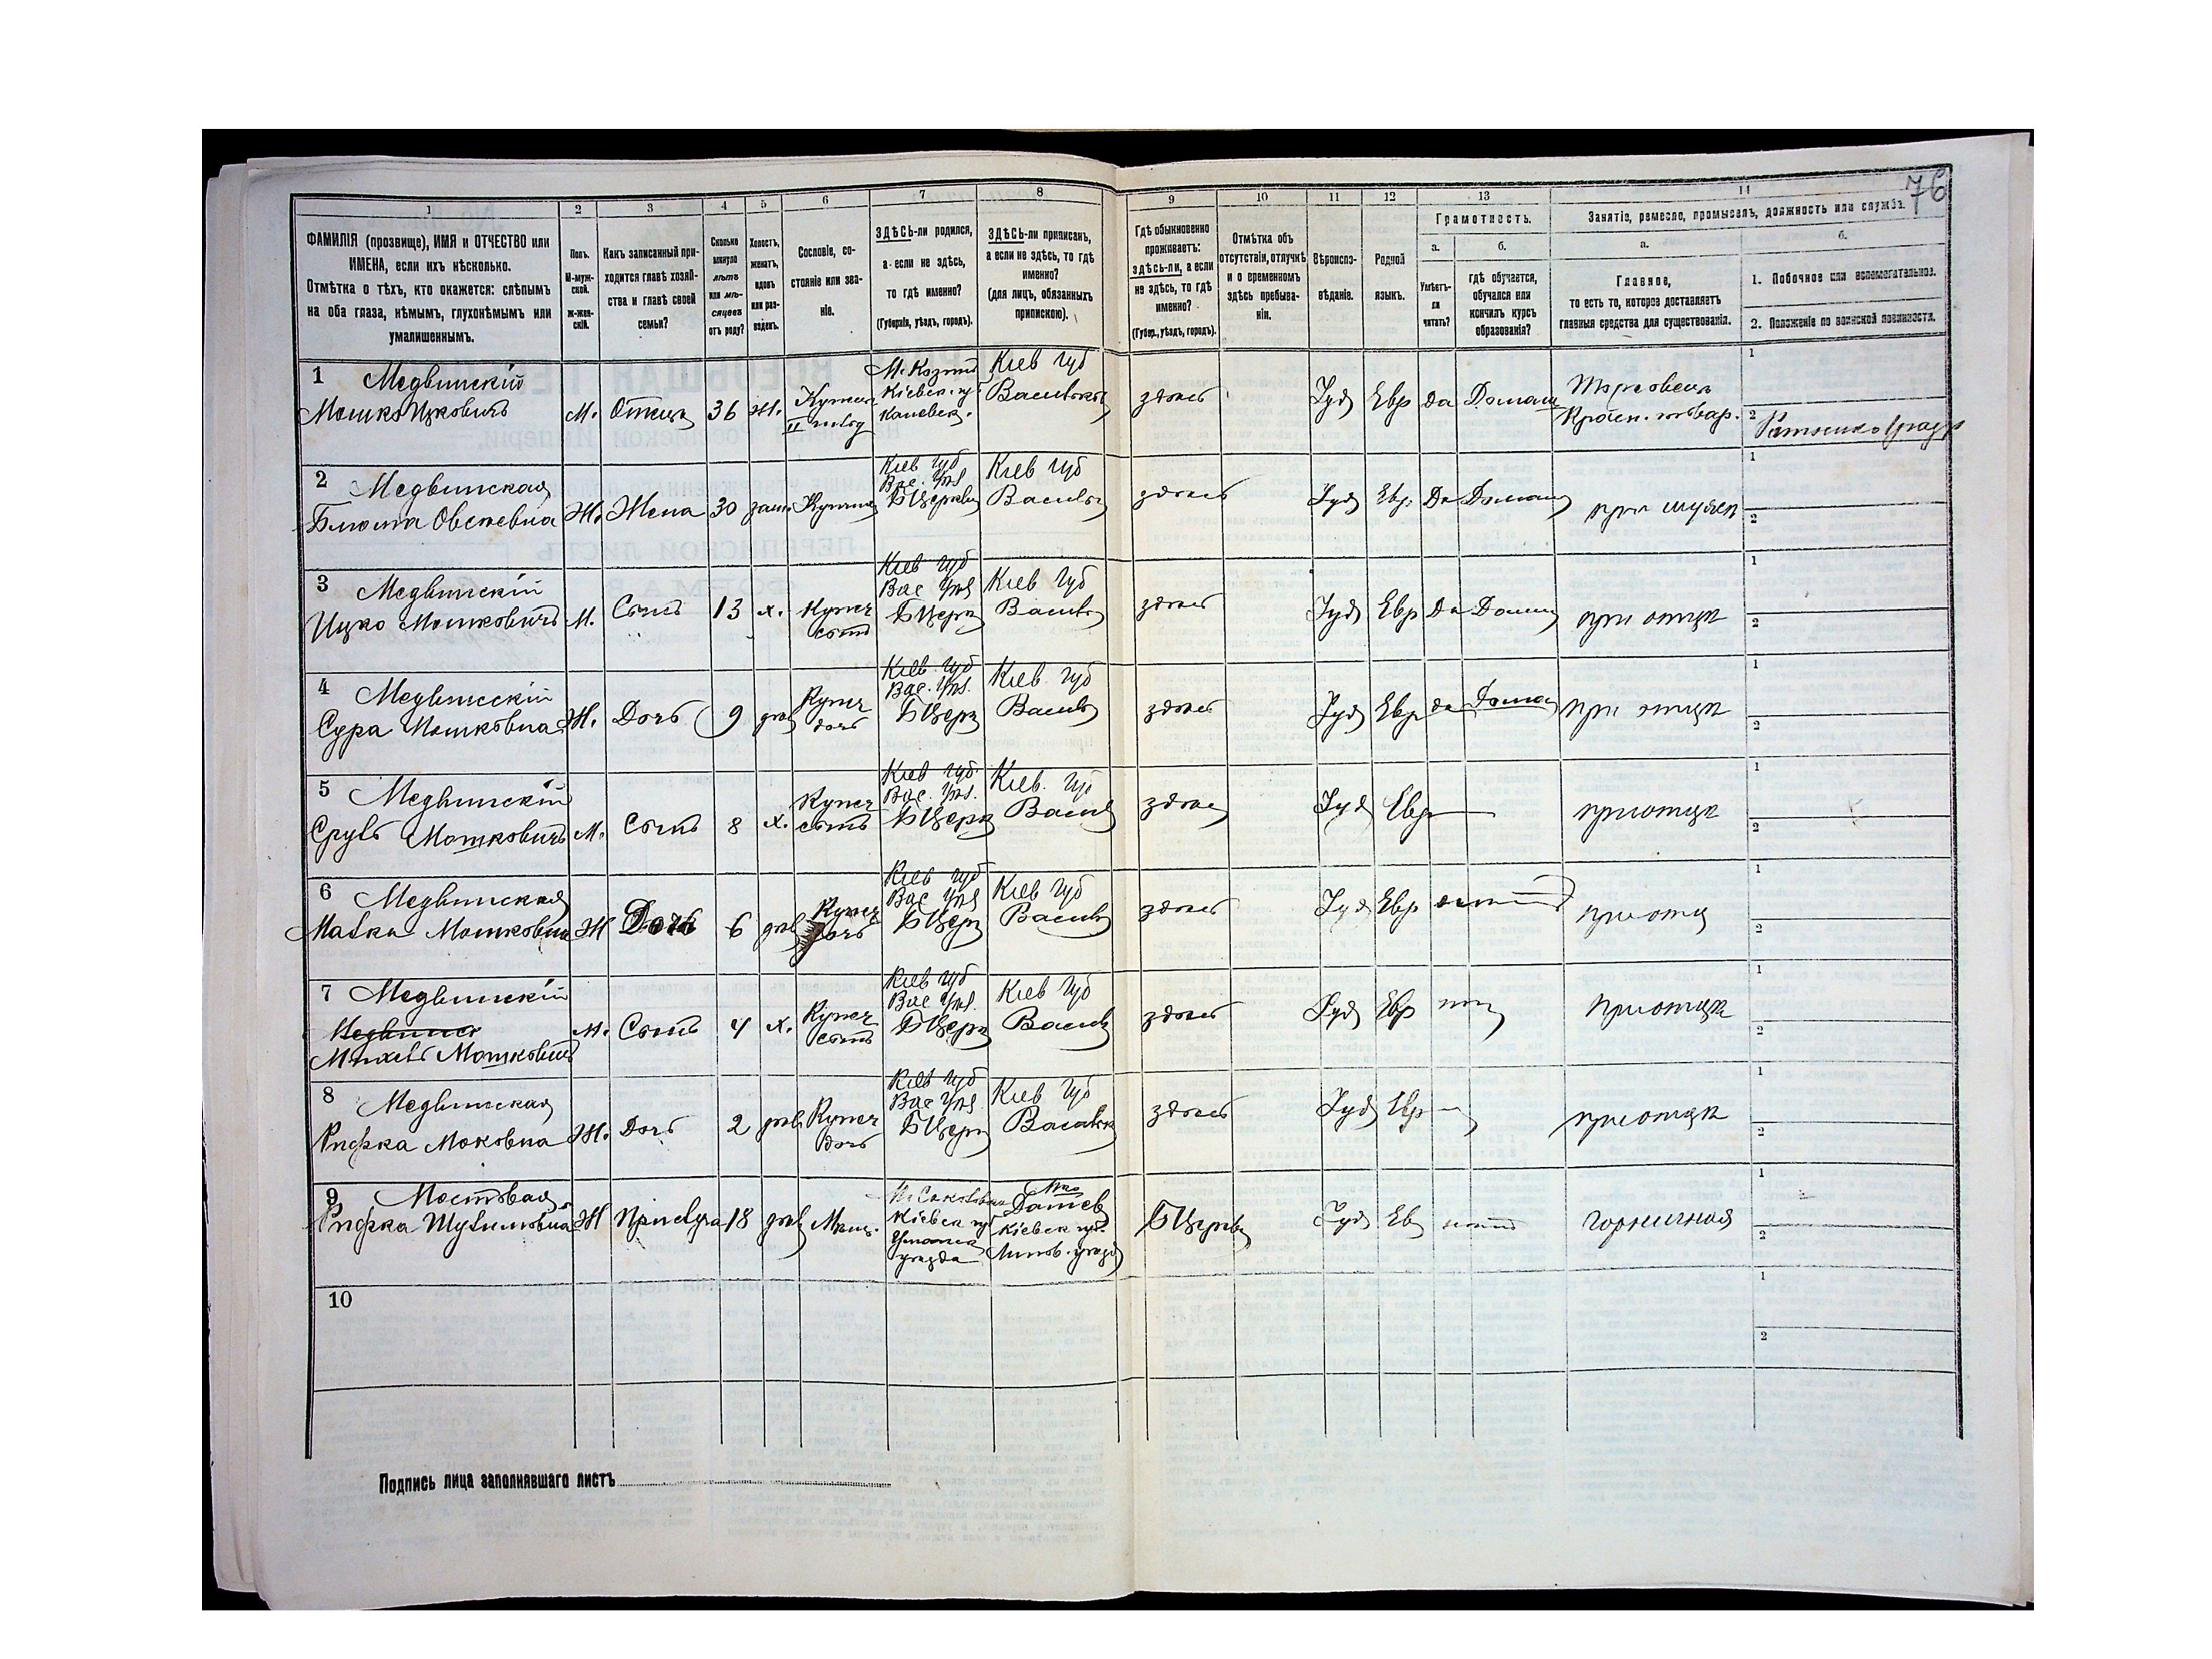 76
1 2 3 4 5 6 7 8 9 10 11 12 13 14
ФАМИЛІЯ (прозвище), ИМЯ и ОТЧЕСТВО или
ИМЕНА, если ихъ нѣсколько.
Отмѣтка о тѣхъ, кто окажется: слѣпымъ
на оба глаза, нѣмымъ, глухонѣмымъ или
умалишеннымъ.
Полъ.
М-муж-
ской.
ж-жен-
скій.
Какъ записанный при-
ходится главѣ хозяй-
ства и главѣ своей
семьи?
Сколько
минуло
лѣтъ
или мѣ-
сяцевъ
отъ роду?
Холостъ,
женатъ,
вдовъ
или раз-
веденъ.
Сословіе, со-
стояніе или зва-
ніе.
ЗДѢСЬ-ли родился,
а если не здѣсь,
то гдѣ именно?
(Губернія, уѣздъ, городъ).
ЗДѢСЬ-ли приписанъ,
а если не здѣсь, то гдѣ
именно?
(для лицъ, обязанныхъ
припискою).
Гдѣ обыкновенно
проживаетъ:
здѣсь-ли, а если
не здѣсь, то гдѣ
именно?
(Губер., уѣздъ, городъ).
Отмѣтка объ
отсутствіи, отлучкѣ
и о временномъ
здѣсь пребыва-
ніи.
Вѣроиспо-
вѣданіе.
Родной
языкъ.
Грамотность.
а.
Умѣетъ-
ли
читать?
б.
гдѣ обучается,
обучался или
кончилъ курсъ
образованія?
Занятіе, ремесло, промыселъ, должность или служба.
а.
Главное,
то есть то, которое доставляетъ
главныя средства для существованія.
б.
1. Побочное или вспомогательное.
2. Положеніе по воинской повинности.
1 Медвинскій
Мошко Ицковичъ
М. Отецъ 36 ж.
Купец
II гильд
Кіевск. г
Каневск.
Кіев губ
Васильк
здѣсь Іуд Евр да Домаш
Торговецъ
Красн. товар.
1
2
2 Медвинская
Блюма Овсеевна
Ж. Жена 30 зам.
Кіев губ
Вас. Уѣз
БЦеркви
Кіев губ
Васильк
здѣсь Іуд Евр. Да Домаш при мужѣ
1
2
3 Медвинскій
Ицко Мошковичъ
М. Сынъ 13 х.
Купеч
сынъ
Кіев губ
Вас Уѣз
БЦерк
Кіев губ
Васильк
здѣсь Іуд Евр Да Домаш при отцѣ
1
2
4 Медвинскій
Сура Мошковна
Ж. Дочь 9 дѣв
Купеч
дочь
Кіев. губ
Вас. Уѣз.
БЦерк
Кіев. губ
Васильк
здѣсь Іуд Евр да Домаш при отцѣ
1
2
5 Медвинскій
Сруль Мошковичъ
М. Сынъ 8 х.
Купеч
сынъ
Кіев губ.
Вас. Уѣз.
БЦерк
Кіев. губ
Васильк
здѣсь Іуд Евр при отцѣ
1
2
6 Медвинская
Малка Мошковна
Ж Дочь 6 дѣв
Купеч
дочь
Кіев губ
Вас Уѣз
БЦерк
Кіев губ
Васильк
здѣсь Іуд Евр при отц
1
2
7 Медвинскій
Михель Мошковичъ
м. Сынъ 4 х.
Купеч
сынъ
Кіев губ
Вас Уѣз.
БЦерк
Кіев губ
Васильк
здѣсь Іуд Евр нѣт при отцѣ
1
2
8 Медвинская
Рифка Моковна
Ж. Дочь 2 дѣв
Купеч
дочь
Кіев губ
Вас Уѣз.
БЦерк
Кіев губ
Васильк
здѣсь Іуд Евр при отцѣ
1
2
9 Мостовая
Рифка Шулимовна
Ж Прислуга 18 дѣв Мѣщ.
Кіевск губ
Уманск
уѣзда
Дашев
Кіевск губ.
Липов. уѣзд
БЦерквь Іуд Ев нѣтъ горничная
1
2
10
1
2
Подпись лица заполнявшаго листъ